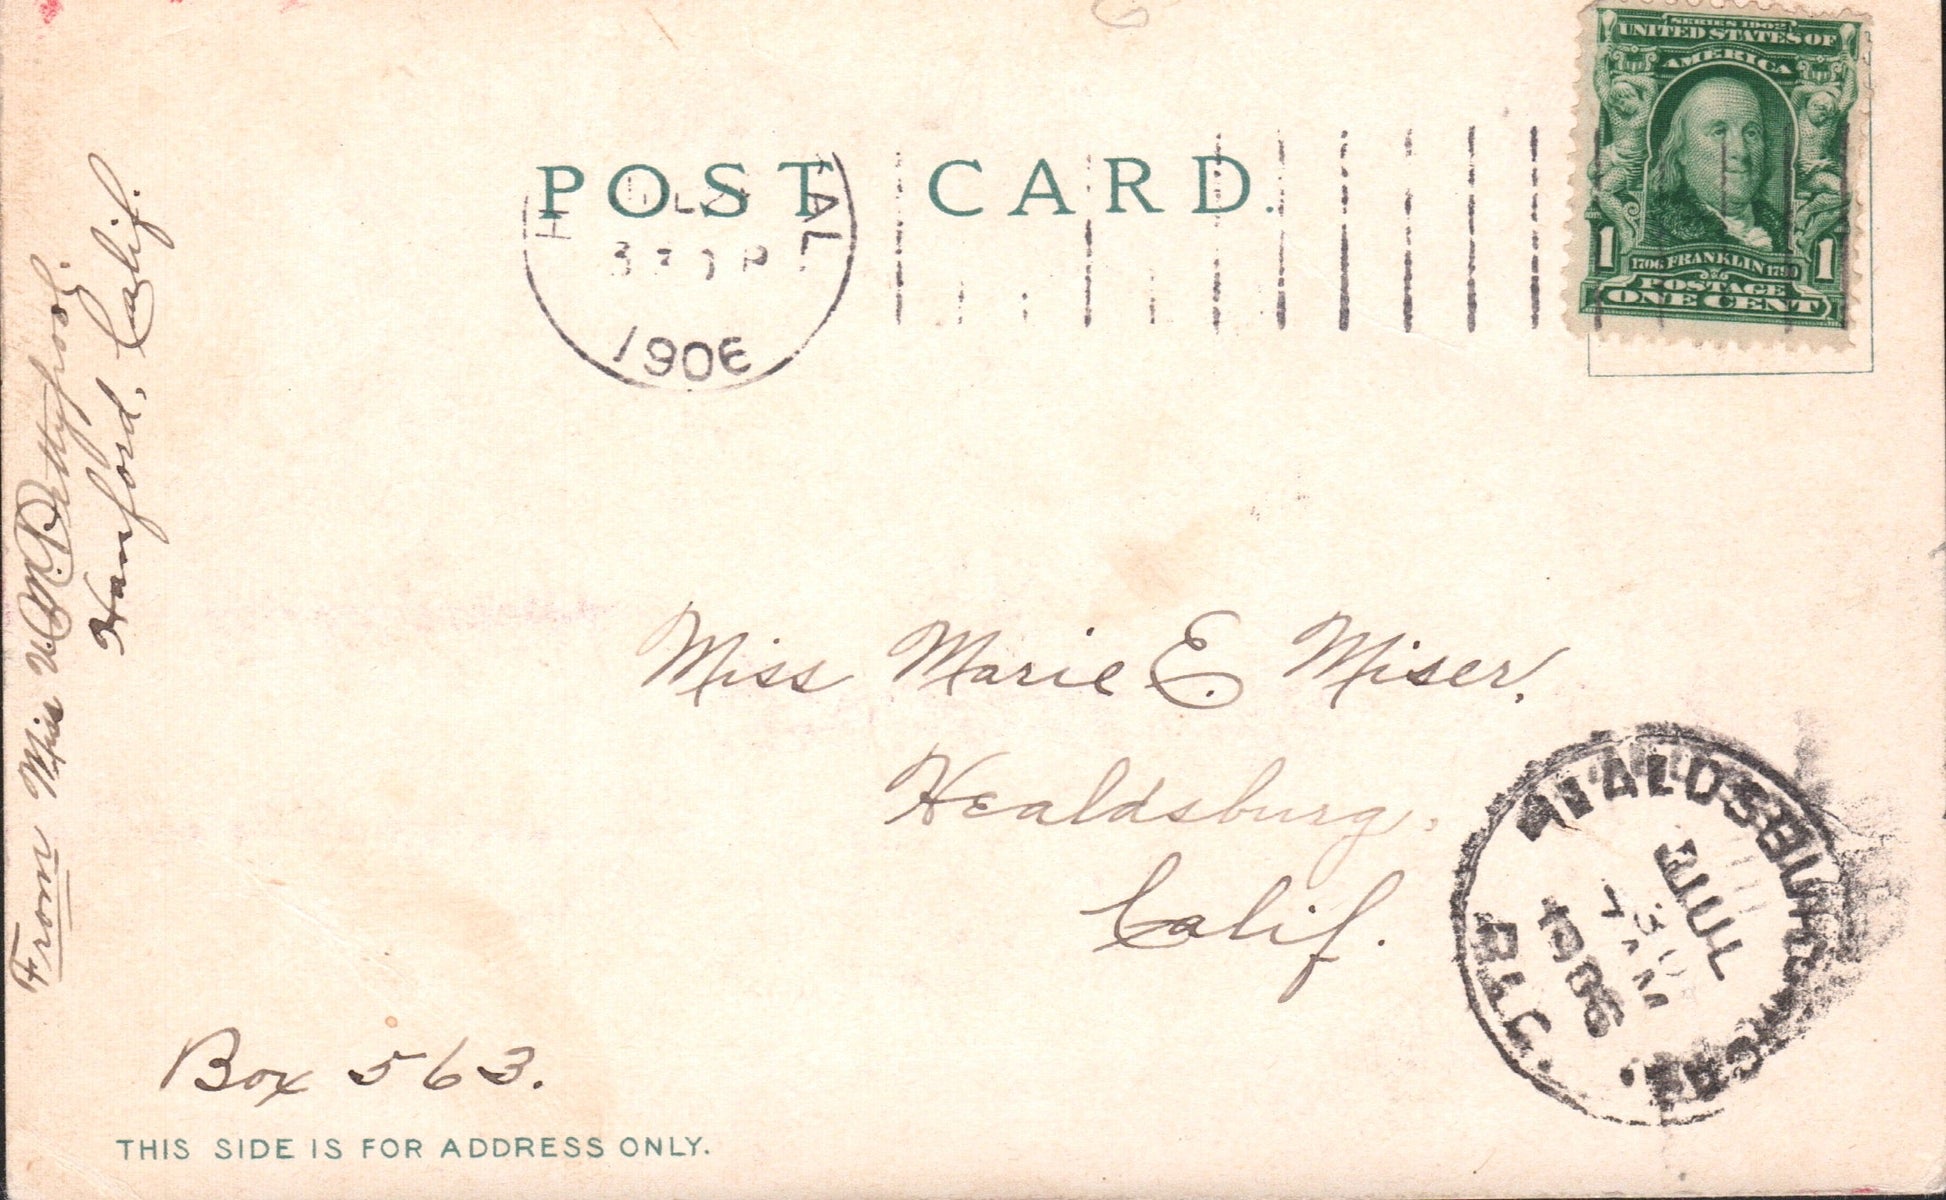 POST CARD.
SERIES 1902
UNITED STATES OF
AMERICA
1 1
1706 FRANKLIN 1790
POSTAGE
ONE CENT
CAL
330 P
1906
From Miss M.
Hanford, Calif.
Miss Marie E. Miser,
Healdsburg,
Calif.
HEALDSBURG
CAL.
JUL
30
7 AM
1906
REC'D.
Box 563.
THIS SIDE IS FOR ADDRESS ONLY.